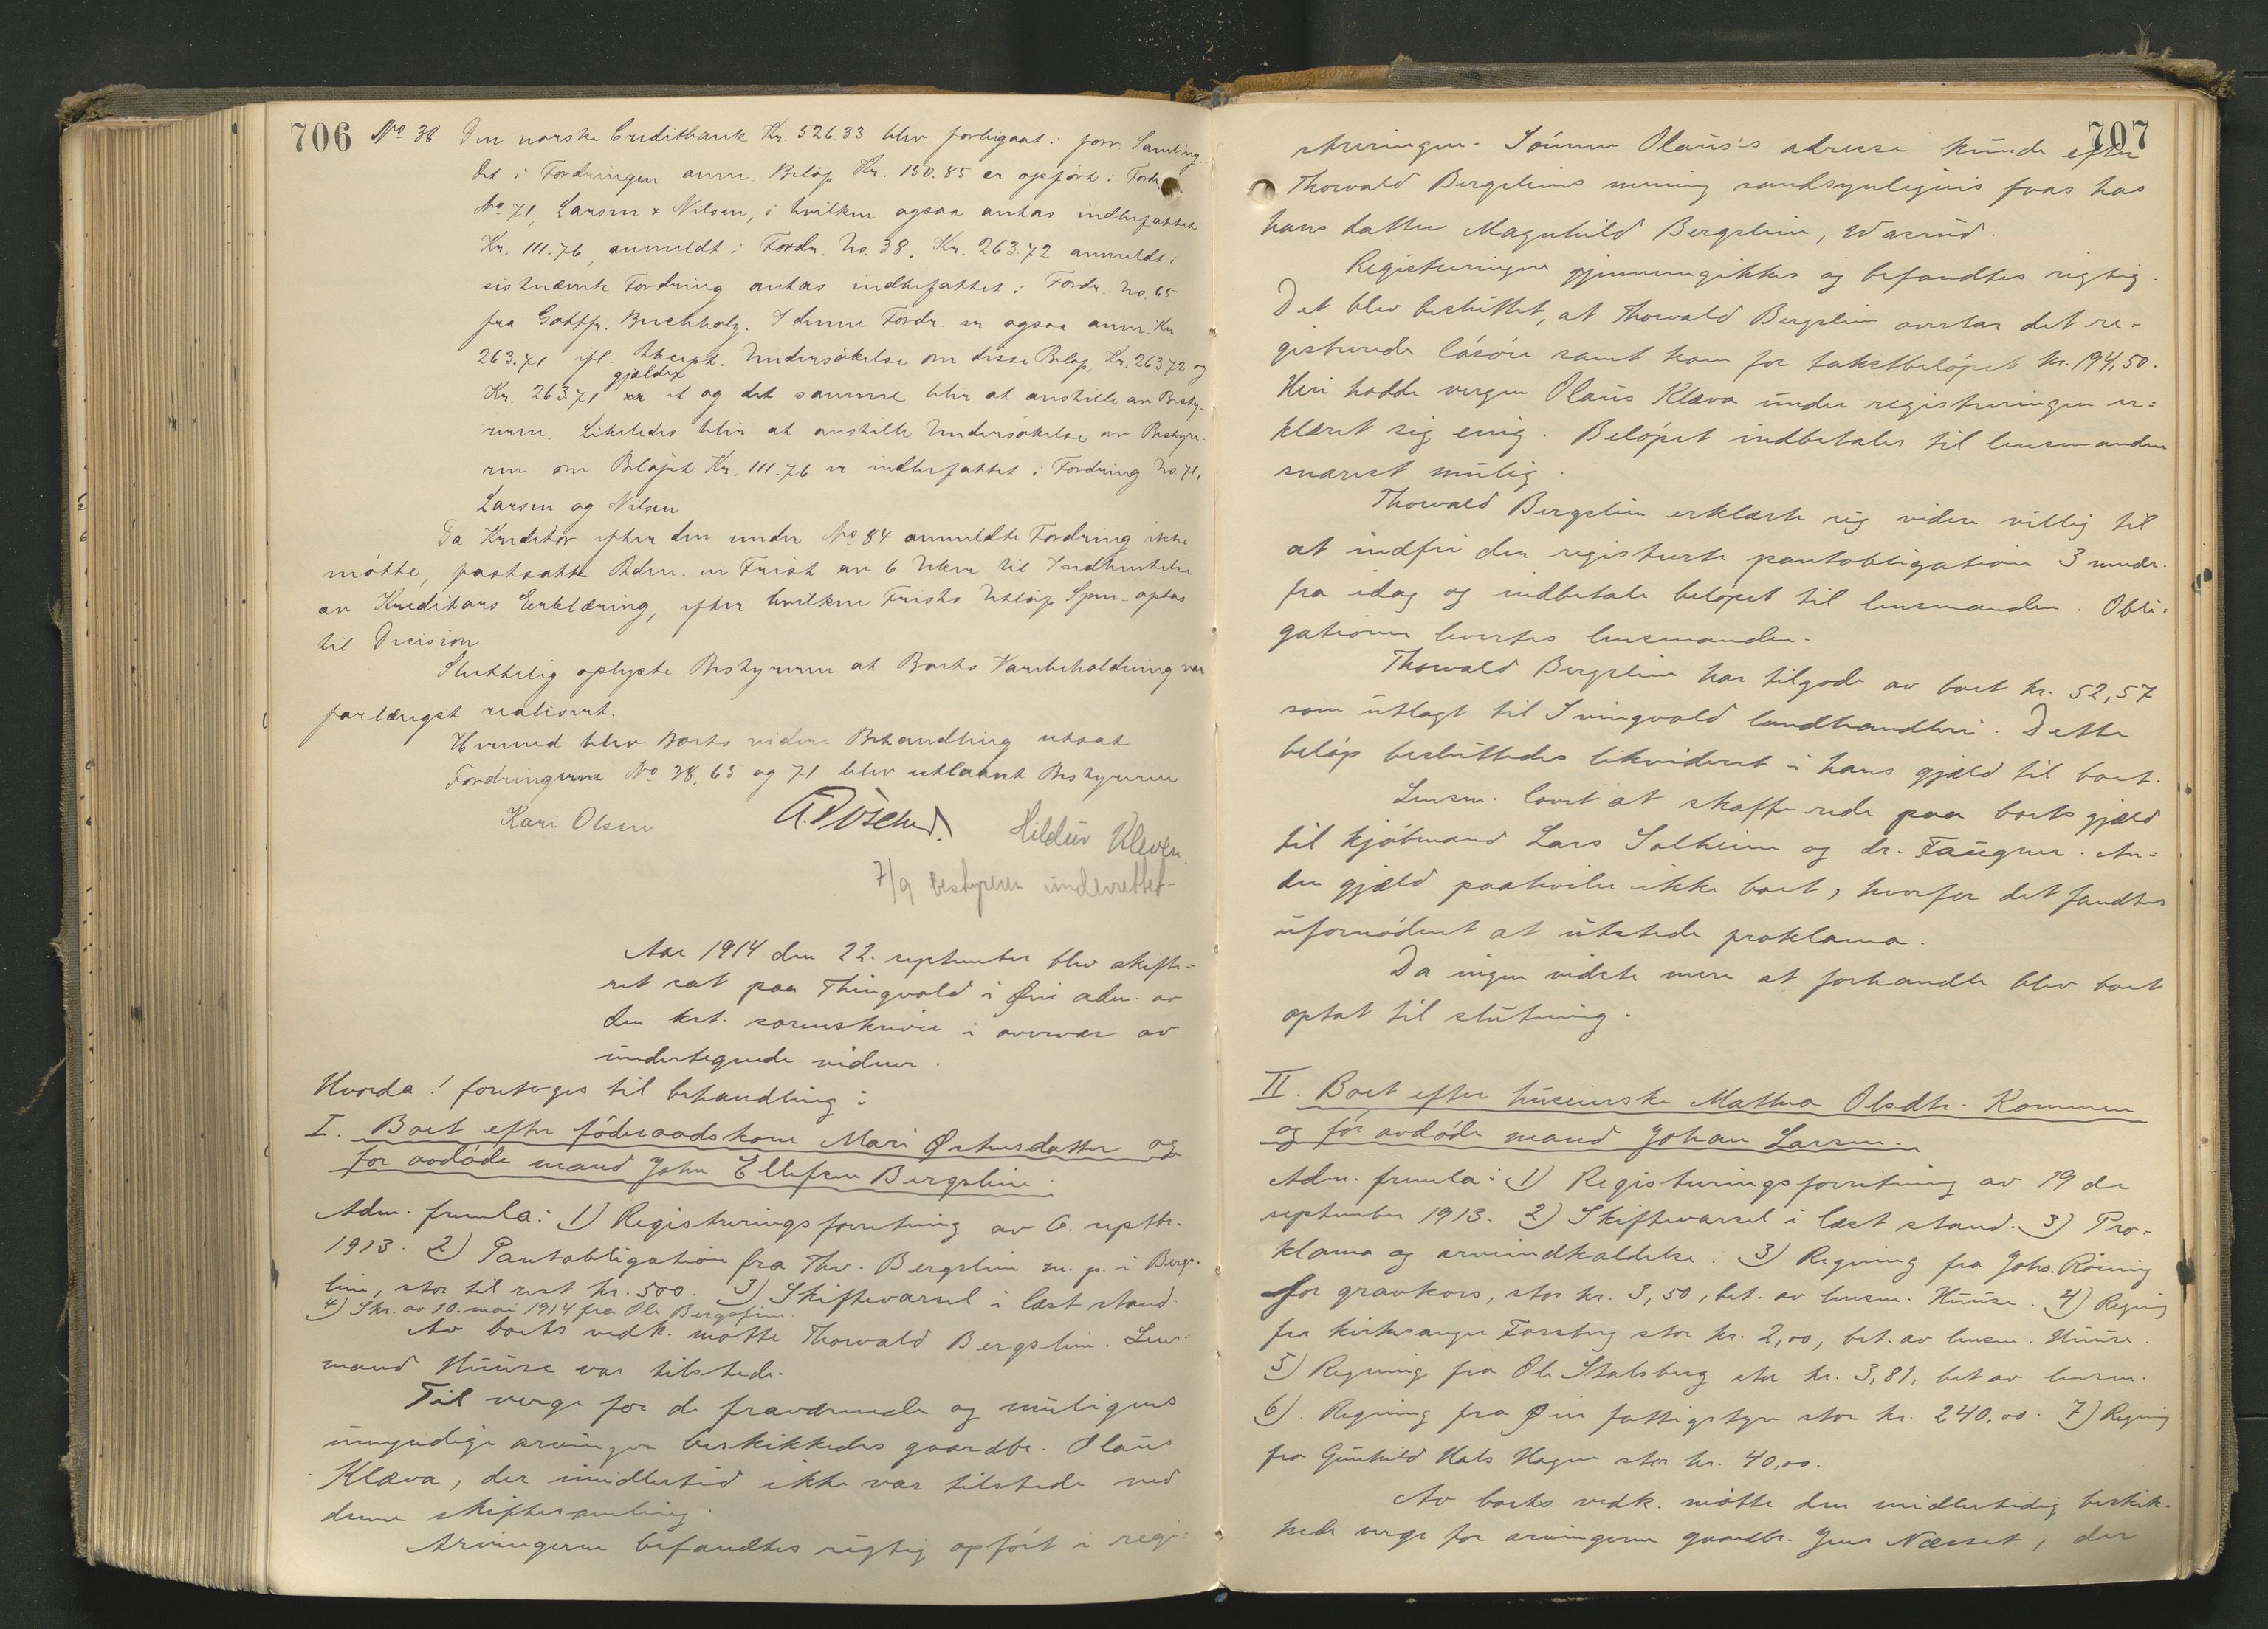 706
Nº 38 Den norske Creditbank Kr. 526.33 blev forbigaat i forr. Samling.
Det i Fordringen anm. Beløp Kr. 150.85 er opført i Fordr
Nº 71, Larsen & Nilsen, i hvilken ogsaa antas indbefattet
Kr. 111.76, anmeldt i Fordr. No. 38. Kr. 263.72 anmeldt i
sistnævnte Fordring antas indbefattet i Fordr. No. 65
fra Gottfr. Buchholz. I denne Fordr. er ogsaa anm. Kr.
263.71 ifl. Akcept. Undersøkelse om disse Beløp, Kr. 263.72 og
gjælder
Kr. 263.71 er et og det samme blir at anstille av Besty-
reren. Likeledes blir at anstille Undersøkelse av Bestyre-
ren om Beløpet Kr. 111.76 er indbefattet i Fordring No. 71,
Larsen og Nilsen
Da Kreditor efter den under Nº 84 anmeldte Fordring ikke
møtte, fastsatte Adm. en Frist av 6 Uker til Indhentelse
av Kreditors Erklæring, efter hvilken Frists Utløp Spm. optas
til Decision
Sluttelig oplyste Bestyreren at Boets Varebeholdning var
forlængst realisert.
Hermed blev Boets videre Behandling utsat
Fordringerne Nº 38, 65 og 71 blev utlaant Bestyreren
Kari Olsen Hildur Kleven.
7/9 bestyreren underrettet-
Aar 1914 den 22. september blev skifte-
ret sat paa Thingvold i Øier adm. av
den kst. sorenskriver i overvær av
undertegnede vidner.
Hvorda! foretoges til behandling:
I. Boet efter føderaadskone Mari Østensdatter og
før avdøde mand John Ellefsen Bergslien.
Adm. fremla: 1) Registreringsforretning av 6. septbr.
1913. 2) Pantobligation fra Thv. Bergslien m. p. i Berg-
lien, stor til rest kr. 500. 3) Skiftevarsel i læst stand.
4) Skr. av 10. mai 1914 fra Ole Bergslien.
Av boets vedk. møtte Thorvald Bergslien. Lens-
mand Huuse var tilstede.
Til verge for de fraværende og muligens
umyndige arvinger beskikkedes gaardbr. Olaus
Klæva, der imidlertid ikke var tilstede ved
denne skiftesamling.
Arvingerne befandtes rigtig opført i regi-
707
streringen. Sønnen Olaus's adresse kunde efter
Thorvald Bergsliens mening sandsynligvis faas hos
hans datter Magnhild Bergslien,
Registreringen gjennemgikkes og befandtes rigtig.
Det blev besluttet, at Thorvald Bergslien overtar det re-
gistrerede løsøre samt kom for takstbeløpet kr. 194,50.
Heri hadde vergen Olaus Klæva under registreringen er-
klært sig enig. Beløpet indbetales til lensmanden
snarest mulig.
Thorvald Bergslien erklærte sig videre villig til
at indfri den registrerte pantobligation 3 mndr.
fra idag og indbetale beløpet til lensmanden. Obli-
gationen levertes lensmanden.
Thorvald Bergslien har tilgode av boet kr. 52,57
som utlagt til Svingvold landhandleri. Dette
beløp besluttedes likvideret i hans gjæld til boet.
Lensm. lovet at skaffe rede paa boets gjæld
til kjøbmand Lars Solheim og dr. Faugner. An-
den gjæld paahviler ikke boet, hvorfor det fandtes
ufornødent at utstede proklama.
Da ingen vidste mere at forhandle blev boet
optat til slutning.
II. Boet efter huseierske Mathea Olsdtr. Kommen
og før avdøde mand Johan Larsen.
Adm. fremla: 1) Registreringsforretning av 19 de
september 1913. 2) Skiftevarsel i læst stand. 3) Pro-
klama og arveindkaldelse. 3) Regning fra Johs. Röining
for gravkors, stor kr. 3,50, bet. av lensm. Huuse. 4) Regning
fra kirkesanger Fossberg stor kr. 2,00, bet. av lensm. Huuse.
5) Regning fra Ole Stalsberg stor kr. 3,81, bet av lensm.
6). Regning fra Øier fattigstyre stor kr. 240,00. 7) Regning
fra Gunhild Hals Hagen stor kr. 40,00.
Av boets vedk. møtte den midlertidig beskik-
kede verge for arvingerne gaardbr. Jens Næsset, der